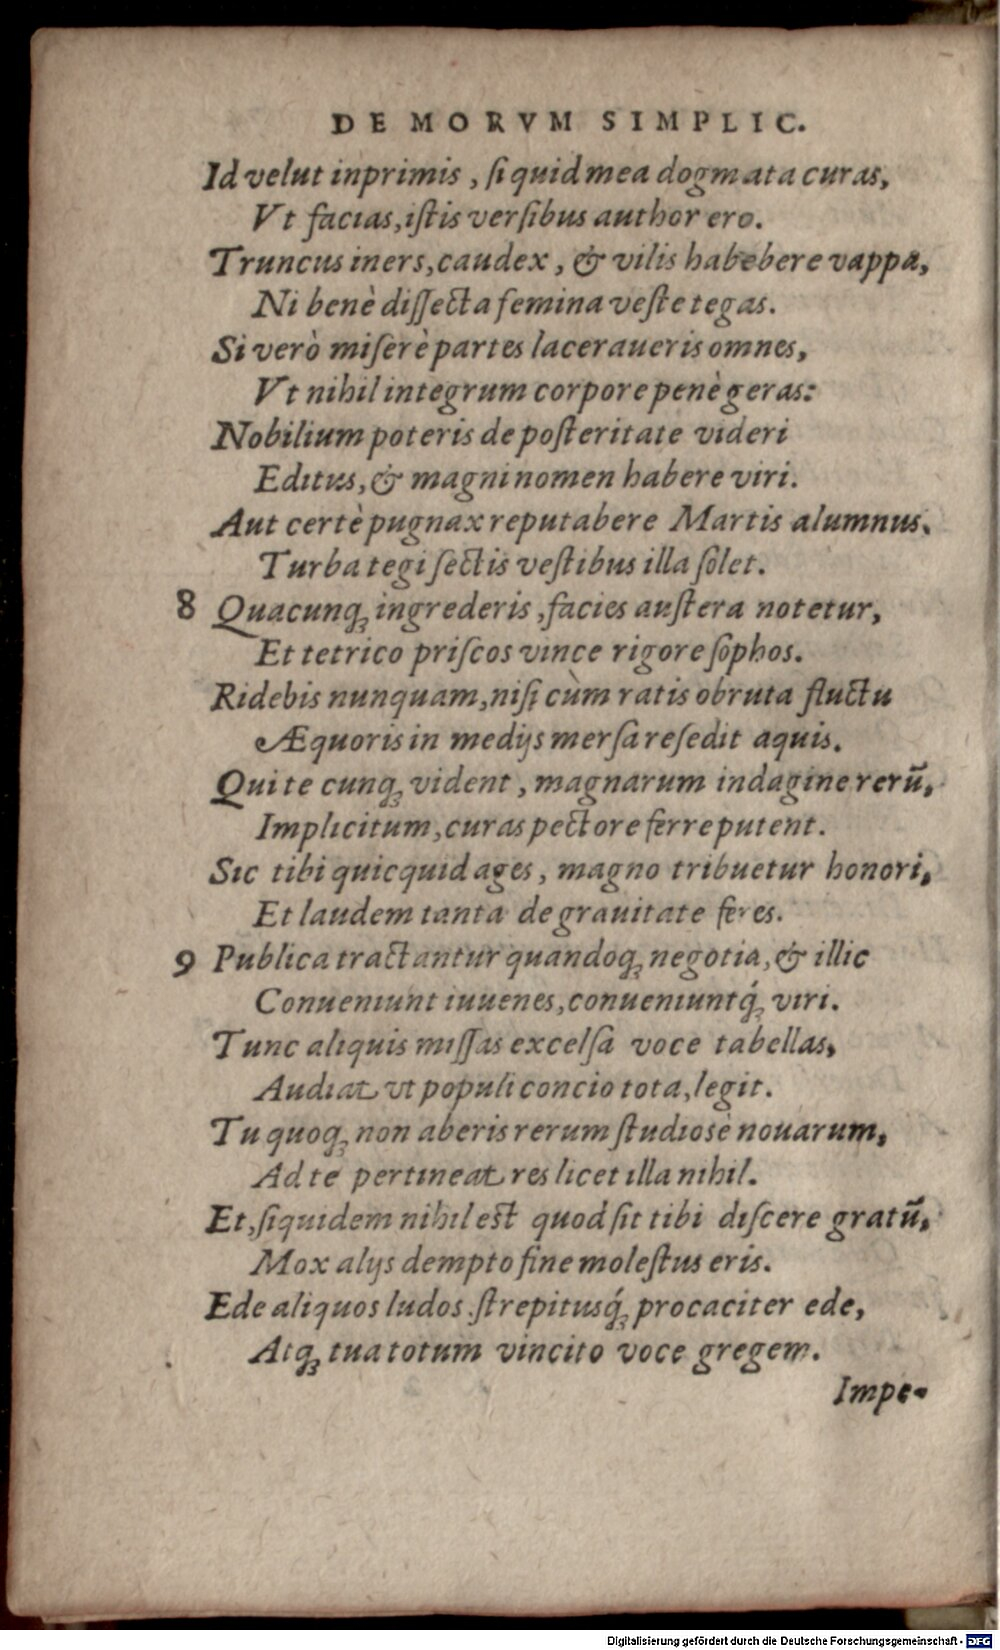 DE MORVM SIMPLIC.
Id velut inprimis, si quid mea dogmata curas,
Vt facias, istis versibus author ero.
Truncus iners, caudex, & vilis habebere vappa,
Ni benè dissecta femina veste tegas.
Si verò miserè partes laceraueris omnes,
Vt nihil integrum corpore penè geras:
Nobilium poteris de posteritate videri
Editus, & magni nomen habere viri.
Aut certè pugnax reputabere Martis alumnus.
Turba tegi sectis vestibus illa solet.
8 Quacunq; ingrederis, facies austera notetur,
Et tetrico priscos vince rigore sophos.
Ridebis nunquam, nisi cùm ratis obruta fluctu
Æquoris in medijs mersa resedit aquis.
Qui te cunq; vident, magnarum indagine rerū,
Implicitum, curas pectore ferre putent.
Sic tibi quicquid ages, magno tribuetur honori,
Et laudem tanta de grauitate feres.
9 Publica tractantur quandoq; negotia, & illic
Conueniunt iuuenes, conueniuntq́; viri.
Tunc aliquis missas excelsa voce tabellas,
Audiat vt populi concio tota, legit.
Tu quoq; non aberis rerum studiosè nouarum,
Ad te pertineat res licet illa nihil.
Et, siquidem nihil est quod sit tibi discere gratū,
Mox alijs dempto fine molestus eris.
Ede aliquos ludos strepitusq́; procaciter ede,
Atq; tua totum vincito voce gregem.
Impe-
Digitalisierung gefördert durch die Deutsche Forschungsgemeinschaft - DFG